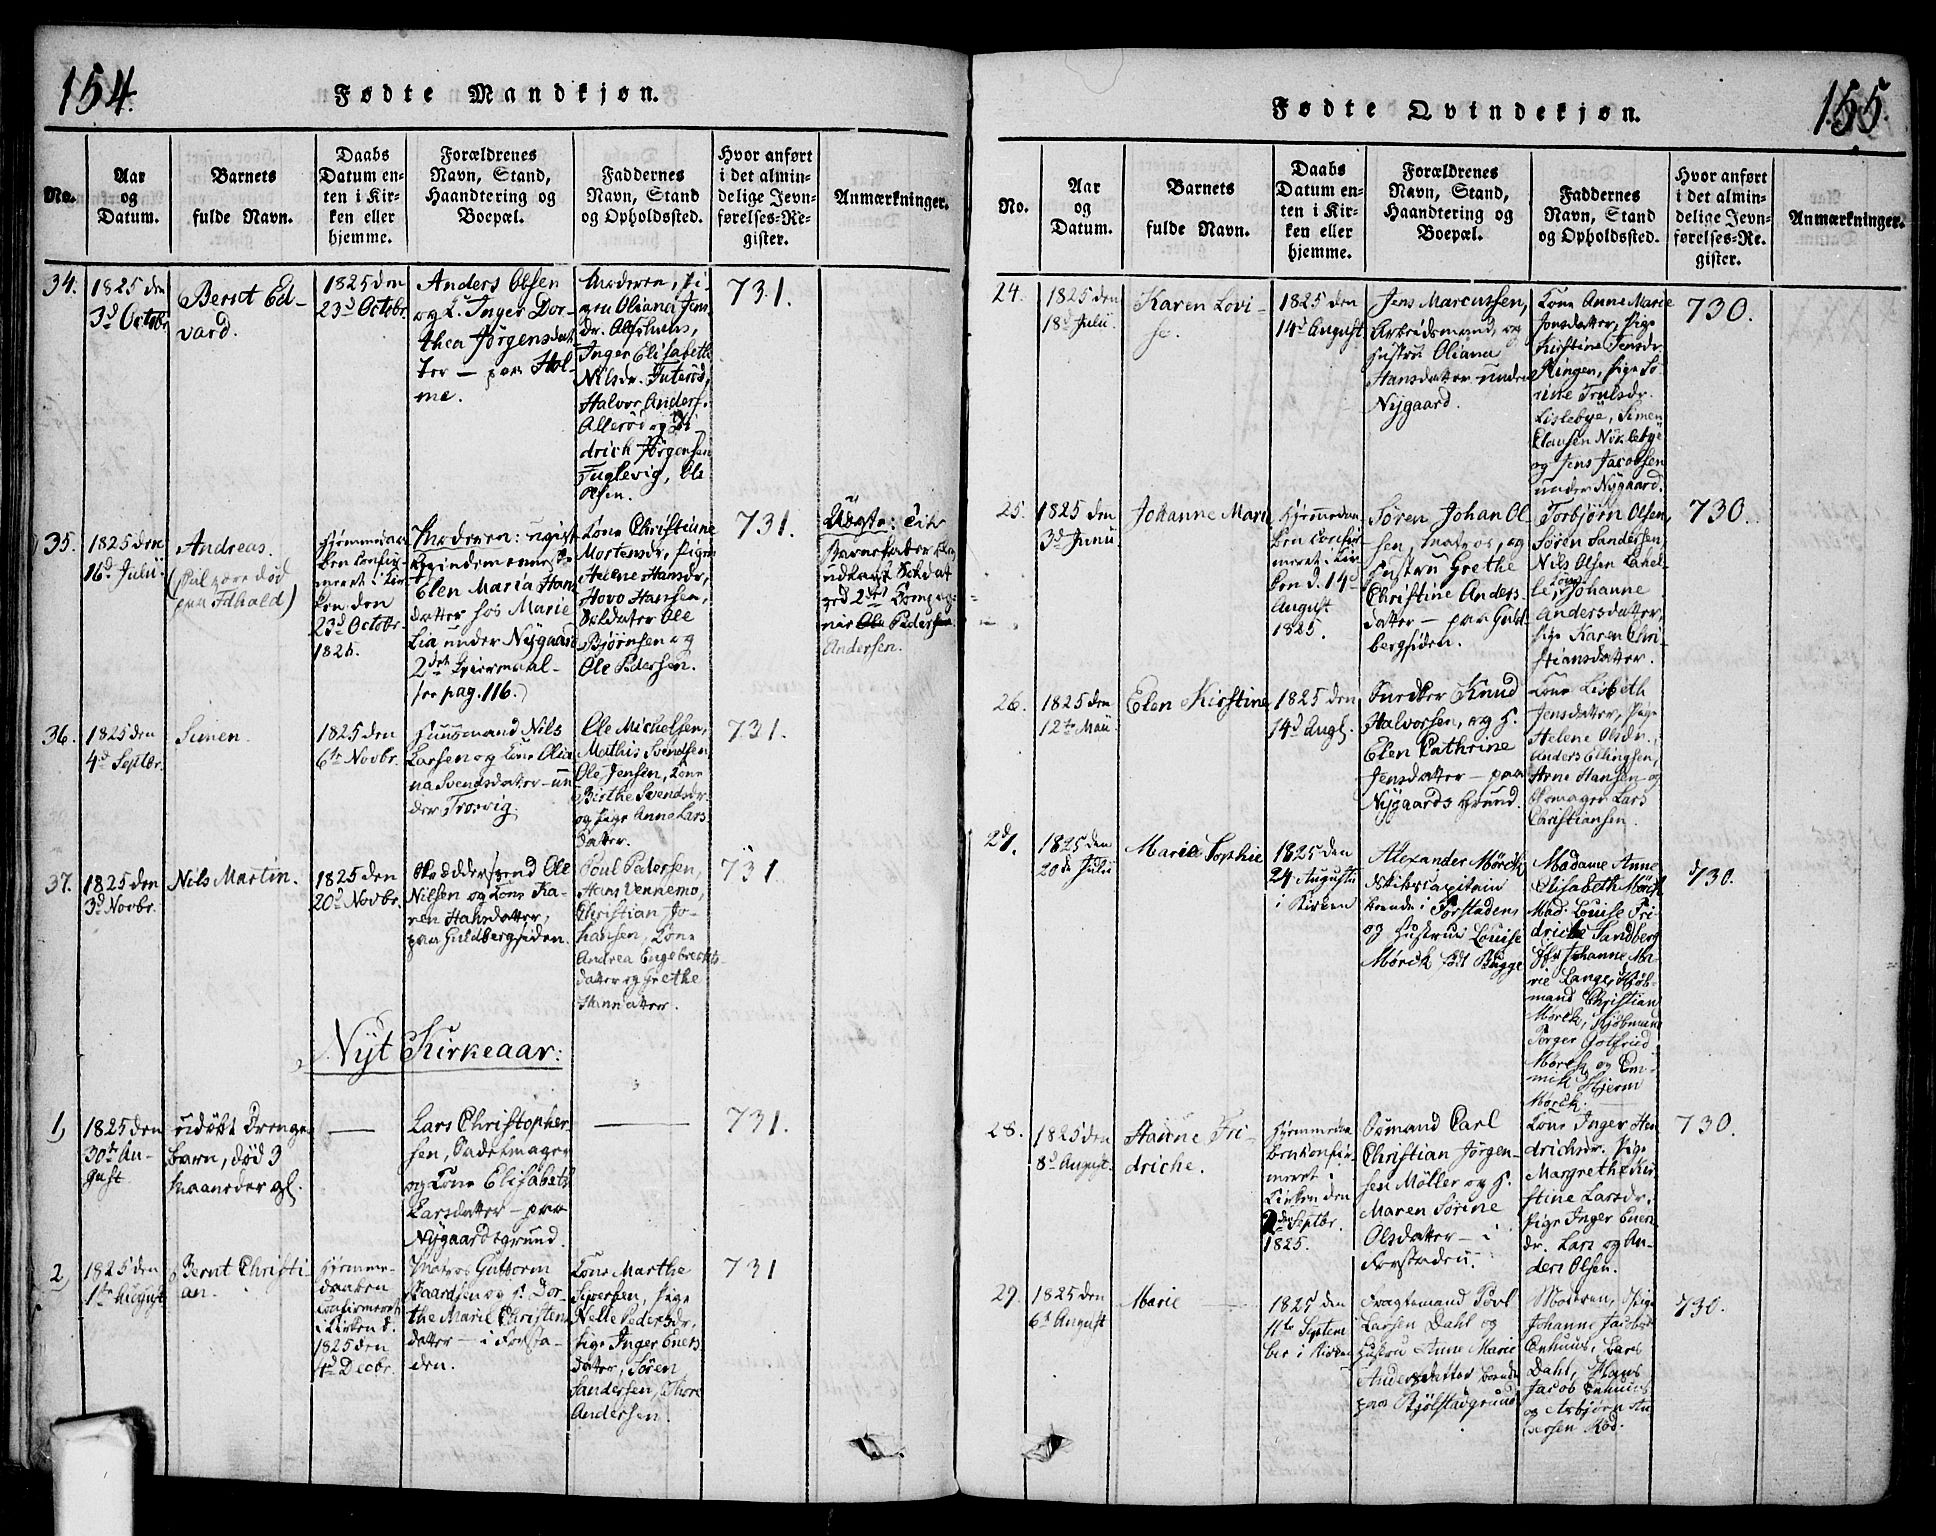 154.
Fødte Mandkjøn.
No.
Aar
og
Datum.
Barnets
fulde Navn.
Daabs
Datum en-
ten i Kir-
ken eller
hjemme.
Forældrenes
Navn, Stand,
Haandtering og
Boepæl.
Faddernes
Navn, Stand
og Opholdssted.
Hvor anført
i det almin-
delige Jevn-
førelses-Re-
gister.
Anmærkninger.
34.
1825 den
3d Octobr.
Bernt Ed-
vard.
1825 den
23d Octobr.
Anders Olsen
og K. Inger Dor-
thea Jörgensdat-
ter — paa Hol-
me.
Maderen, Pi-
gen Oliana Jens
dr.
Inger Elisabeth
Nilsdr.
Halvor Anders.
Allerød og Di
drich Jörgensen
Fuglevig, Ole
Olsen.
731.
35.
1825 den
16d Julii.
Andreas.
(Sal være død
paa Idhald)
Hjemmedaa-
ben Confir-
meret i Kir
ken den
23d Octobr.
1825.
Moderen: ugift
Qvindemenneske
Elen Maria Hans
datter hos Marie
Lia under Nygaard
2det Leiermaal-
see pag. 116.)
Kone Christine
Mortensdr, Pigen
Helene Hansdr,
Hovo Hansen,
Soldater Ole
Bjørnsen og
Ole Pedersen.
731.
Uægte: Til
Barnefader blev
udlagt Soldat
ved 2det Compag-
nie Ole Pedersen
Andersen.
36.
1825 den
4d Septbr.
Simen.
1825 den
6te Novbr.
Huusmand Nils
Larsen og Kone Olia
na Svendsdatter — un
der Trosvig.
Ole Michelsen,
Mathis Svendsen
Ole Jensen, Kone
Birthe Svendsdr.
og Pige Anne Lars
datter.
731.
37.
1825 den
3d Novbr.
Nils Martin.
1825 den
20d Novbr.
Skræddersvend Ole
Nilsen og Kone Ka-
ren Hansdatter,
paa Guldbergsiden.
Poul Pedersen,
Hans Vennemo,
Christian Jo-
hansen, Kone
Andrea Engebrechts
datter og Grethe
Hansdatter.
731
Nyt Kirkeaar:
1,
1825 den
30te Au-
gust
udøbt Drenge
barn, død 3
Maaneder gl.
—
Lars Christopher
sen, Sadelmager
og Kone Elisabeth
Larsdatter — paa
Nygaardsgrund.
—
731.
2,
1825 den
1ste August
Bernt Christi
an.
Hjemme-
daaben
Confirmeret
i Kirken d.
1825 den
4d Decbr.
Matros Guttorm
Baardsen og H. Dor-
the Marie Christens
datter — i Forsta-
den.
Kone Marthe
Siversen, Pige
Nelle Pedersdr,
Pige Inger Enets
datter, Søren
Sandersen, Thore
Andersen.
731
155.
Fødte Qvindekjøn.
No.
Aar
og
Datum.
Barnets
fulde Navn.
Daabs
Datum en-
ten i Kir-
ken eller
hjemme.
Forældrenes
Navn, Stand,
Haandtering og
Boepæl.
Faddernes
Navn, Stand
og Opholdssted.
Hvor anført
i det almin-
delige Jevn-
førelses-Re-
gister.
Anmærkninger.
24.
1825 den
18d Julii
Karen Lovi-
se.
1825 den
14d August
Jens Marcussen,
Arbeidsmand, og
Hustru Oliana
Hansdatter under
Nygaard.
Kone Anne Marie
Jonsdatter, Pige
Kirstine Jensdr.
Ringen, Pige Se
rine Trulsdr.
Lislebye, Simen
Clausen Niklebye
og Jens Jacobsen
under Nygaard.
730.
25.
1825 den
3d Junii
Johanne Marie
Hjemmedaa
ben Confir
meret i Kir
ken d. 14d
August
1825.
Søren Johan Ol
sen, Matros, og
Hustru Grethe
Christine Anders
datter — paa Guld
bergsiden.
Torbjørn Olsen,
Søren Sandersen,
Nils Olsen Label
le, Kone Johanne
Andersdatter,
Pige Karen Chri
stiansdatter.
730.
26.
1825 den
12te Maii
Elen Kirstine
1825 den
14d Augl.
Snedker Knud
Halvorsen, og H.
Elen Cathrine
Jensdatter — paa
Nygaards Grund.
Kone Lisbeth
Jensdatter, Pige
Helene Olsdr.,
Anders Ellingsen,
Arne Hansen og
Lars
Christiansen.
27.
1825 den
20de Julii
Marie Sophie
1825 den
24 Augustii
i Kirken
Alexander Mørch
Skibscapitain
boende i Forstaden
og Hustrue Louise
Mørck født Bugge
Madame Anne
Elisabeth Mörch
Mad. Louise Fri-
driche Sandberg
Jfr Johanne Ma-
rie Lange, Kjöb-
mand Christian
Mörck, Kjøbmand
Jørger Gotfried
Mørch og Em-
mik Hjerm
Mørck.
730.
28.
1825 den
8d August.
Hanne Fri-
driche.
Hjemmedaa
ben konfir
meret i
Kirken den
2den Septbr.
1825.
Formand Carl
Christian Jörgen-
sen Möller og H.
Maren Sørine
Olsdatter — i
Forstaden.
Kone Inger Hen
drichsdr. Pige
Margrethe Kir
stine Larsdr.
Pige Inger Even
dr. Lars og An-
ders Olsen.
730.
29.
1825 den
6d August
Marie
1825 den
11te Septem
ber i Kirken
Fragtemand Povl
Larsen Dahl og
Hustru Anne Marie
Andersdatter boende
paa Bjølstadgrund
Modren, Pige
Johanne Jacobsd
Enhuus, Lars
Dahl, Hans
Jacob Enhuus
og Asbjørn An
dersen Rød.
730.